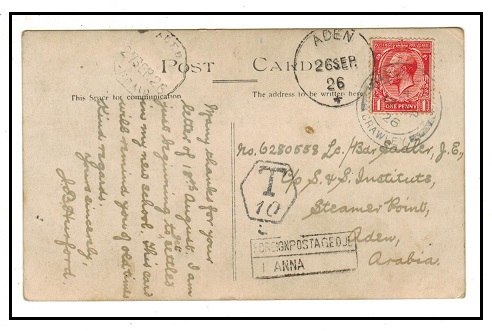 POST CARD
This Space for communication
The address to be written here
ADEN
26 SEP
26
ONE PENNY
T
10
FOREIGN POSTAGE DUE
1 ANNA
No. 6280558 Lc./Bdr Sadler, J.E,
c/o S. & S. Institute,
Steamer Point,
Aden,
Arabia.
Many thanks for your
letter of 18th August. I am
just beginning to settle
in my new school. This card
will remind you of old times
Kind regards.
Yours sincerely,